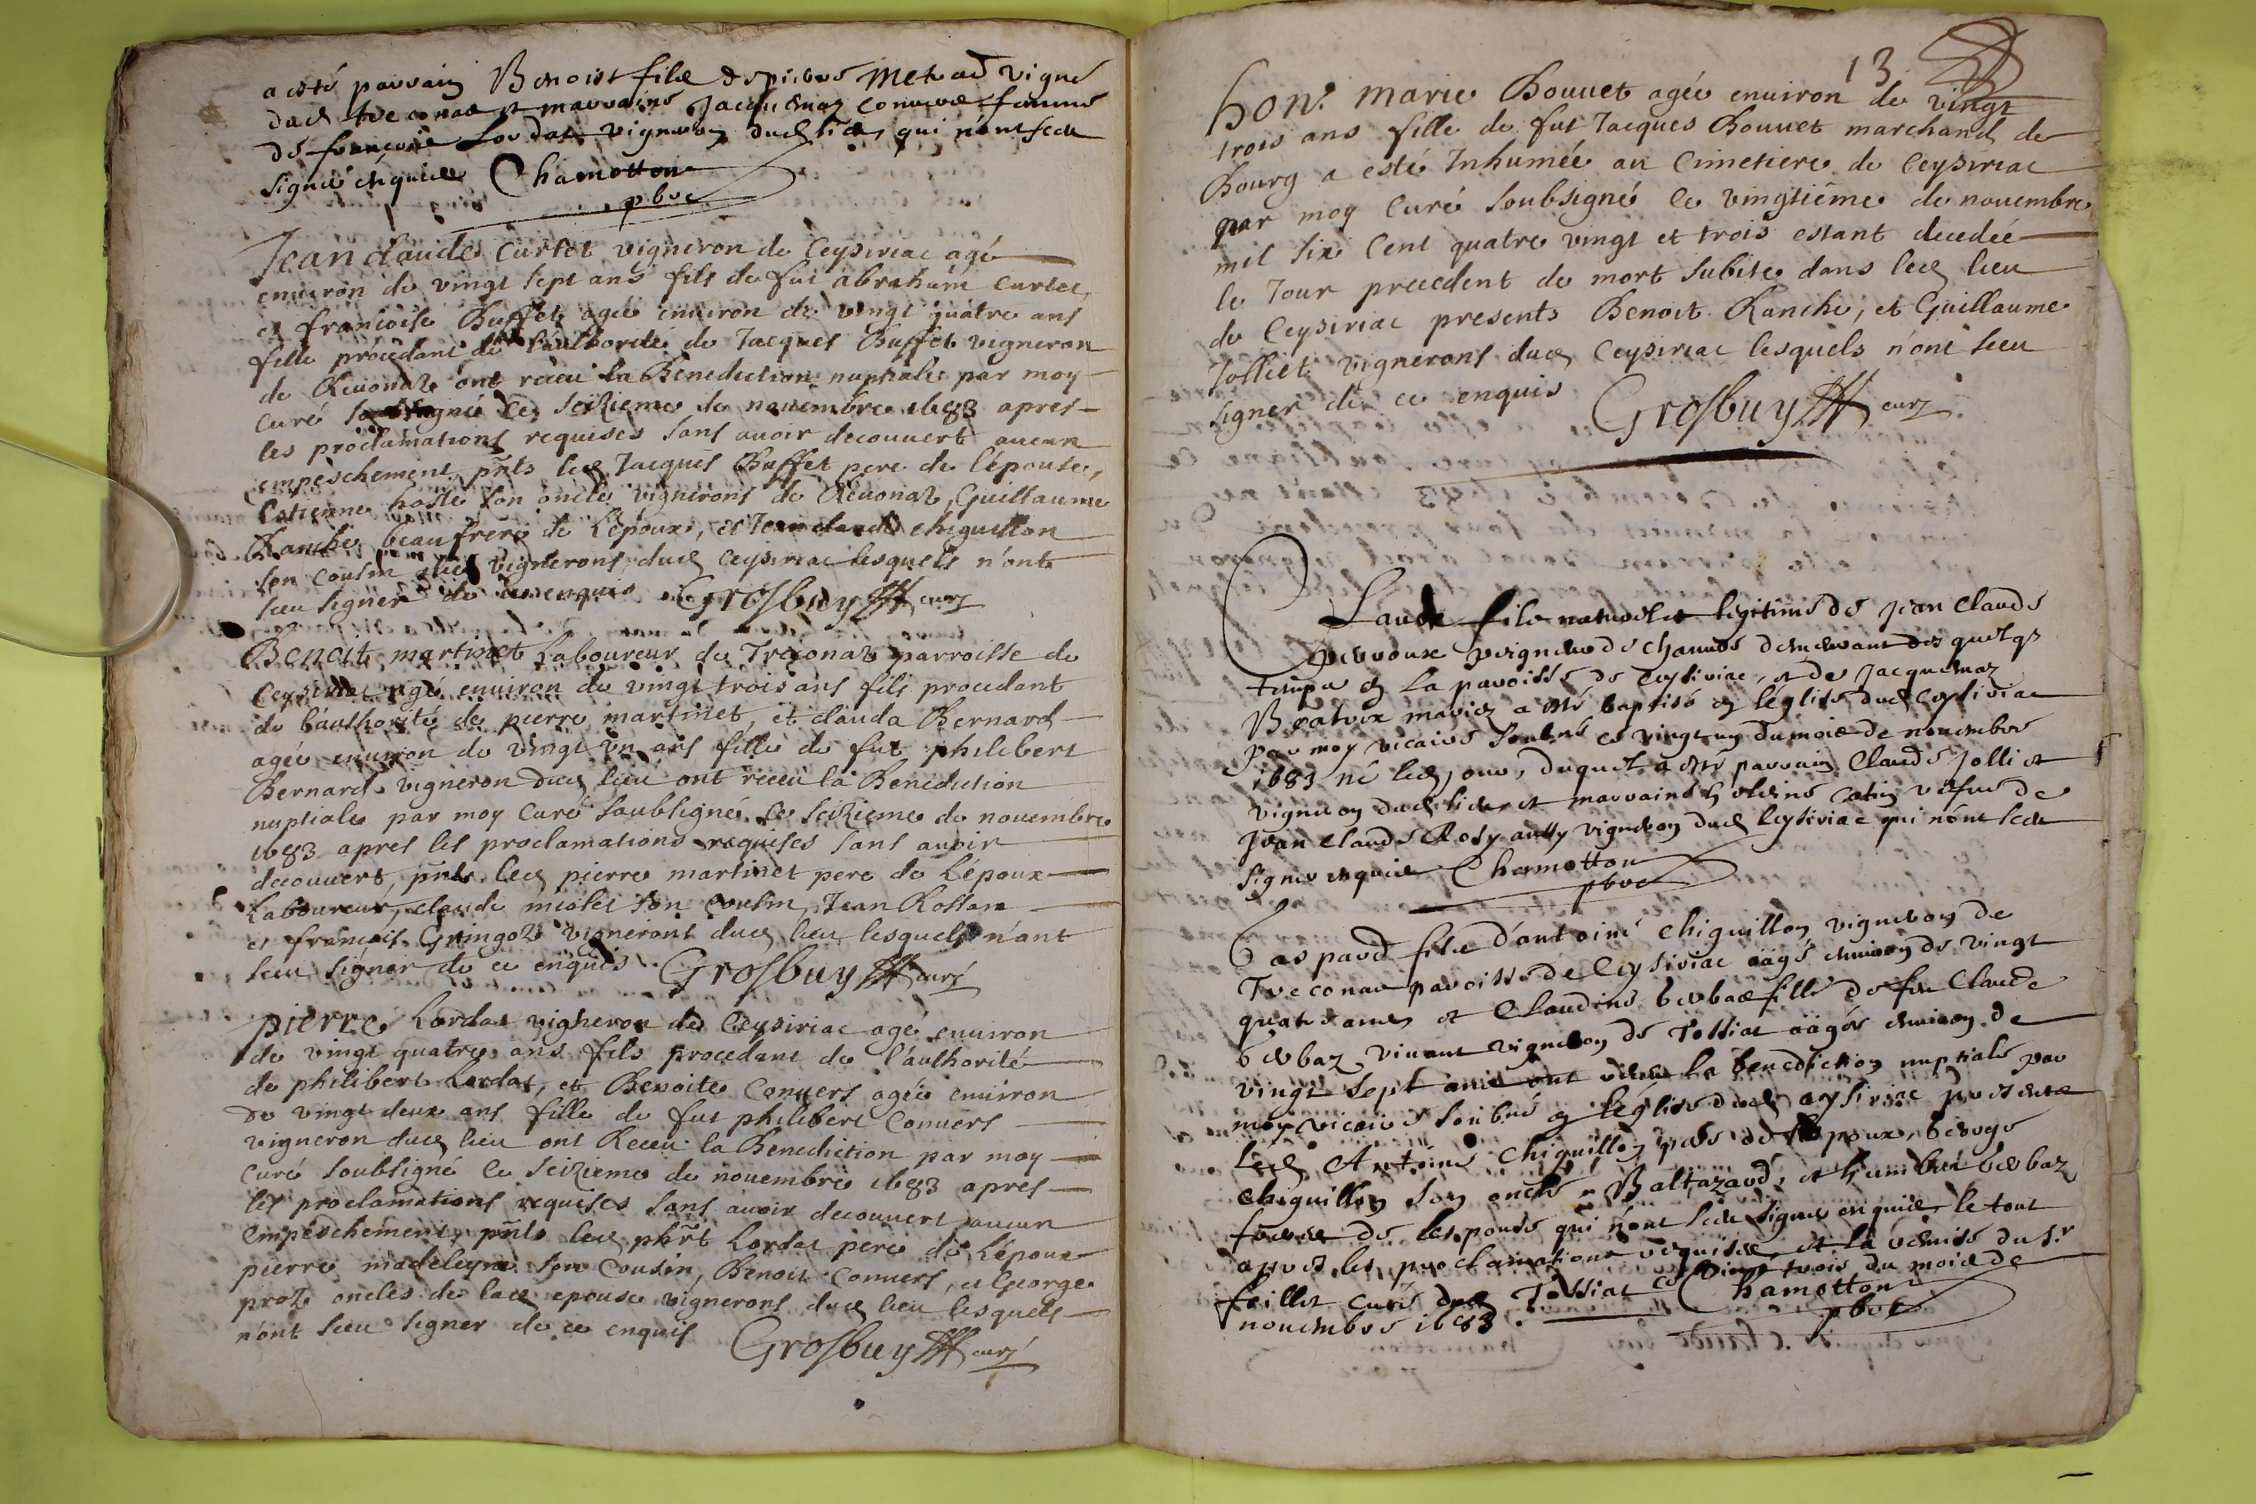 a esté parrain Benoist fils de pierre Metrad vigner
dud Treconas et marraine Jacquemaz Convers femme
de françois Lordat vigneron dud lieu, qui n'ont sceu
signer enquis Chamotton
pbre
Jean claude curtet vigneron de Ceysiriac agé
environ de vingt sept ans fils de fut abraham curtet,
et francoise Buffet agée environ de vingt quatre ans
fille procedant de l'authorité de Jacques Buffet vigneron
de Revonaz ont receu la Benediction nuptiale par moy
curé soubsigné ce seizieme de novembre 1683 apres
les proclamations requises sans avoir decouvert aucun
empeschement pnts led Jacques Buffet pere de l'épouse,
Estienne hoste son oncle vignerons de Revonaz, Guillaume
Ranche beaufrere de L'epoux, et Jean claude chiguillon
son cousin vignerons dud Ceysiriac lesquels n'ont
sceu signer de ce enquis Grosbuy curé
Benoit martinet Laboureur de Treconaz parroisse de
Ceysiriac agé environ de vingt trois ans fils procedant
de l'authorité de pierre martinet, et clauda Bernard
agée environ de vingt un ans fille de fut philibert
Bernard vigneron dud lieu ont receu la Benediction
nuptiale par moy curé soubsigné ce seizieme de novembre
1683 apres les proclamations requises sans avoir
decouvert, pnts led pierre martinet pere de L'époux
Laboureur, claude miolet son cousin, Jean Rossan
et francois Gringoz vignerons dud lieu lesquels n'ont
sceu signer de ce enquis Grosbuy curé
pierre Lordat vigneron de Ceysiriac agé environ
de vingt quatre ans fils procedant de l'authorité
de philibert Lordat, et Benoite Convers agée environ
de vingt deux ans fille de fut philibert Convers
vigneron dud lieu ont Receu la Benediction par moy
curé soubsigné ce seizieme de novembre 1683 apres
les proclamations requises sans avoir decouvert aucun
empeschement, pnts led phbt Lordat pere de L'époux
pierre madeleyne son Cousin, Benoit Convers, et George
proz oncles de lad epouse vignerons dud lieu lesquels
n'ont sceu signer de ce enquis Grosbuy curé
13
hon. Marie Bouvet agée environ de vingt
trois ans fille de fut Jacques Bouvet marchand de
Bourg a esté Inhumée au Cimetiere de Ceysiriac
par moy Curé soubsigné ce vingtiême de novembre
mil six Cent quatre vingt et trois estant decedée
le Jour precedent de mort subite dans led lieu
de Ceysiriac presents Benoit Ranche, et Guillaume
Jolliet vignerons dud Ceysiriac lesquels n'ont sceu
signer de ce enquis Grosbuy curé
Claude fils naturel et legitime de Jean Claude
vigneron de demeurant des quelqs
temps en la paroisse de Ceysiriac, et de Jacquemaz
mariez a esté baptisé en l'église dud Ceysiriac
par moy vicaire soubné ce vingt un du mois de novembre
1683 né led jour, duquel a esté parrain Claude Jolliet
vigneron dud lieu et marraine catin vefve de
Jean Claude Rosy aussy vigneron dud Ceysiriac qui n'ont sceu
signer enquis Chamotton
pbre
Gaspard fils d'antoine chiguillon vigneron de
Treconas paroisse de Ceysiriac aâgé environ de vingt
quatre ans et Claudine Gerbaz fille de feu Claude
Gerbaz vivant vigneron de Tossiat aâgée environ de
vingt sept ans ont receu la benediction nuptiale par
moy vicaire soubné en l'église dud Ceysiriac presents
Led Antoine Chiguillon pere de l'époux, George
Chiguillon son oncle, Baltazard, et humbert Gerbaz
freres de l'espouse qui n'ont sceu signer enquis, le tout
apres les proclamations requises et la remise du sr
feillet curé dud Tossiat ce vingt trois du mois de
novembre 1683. Chamotton
pbre